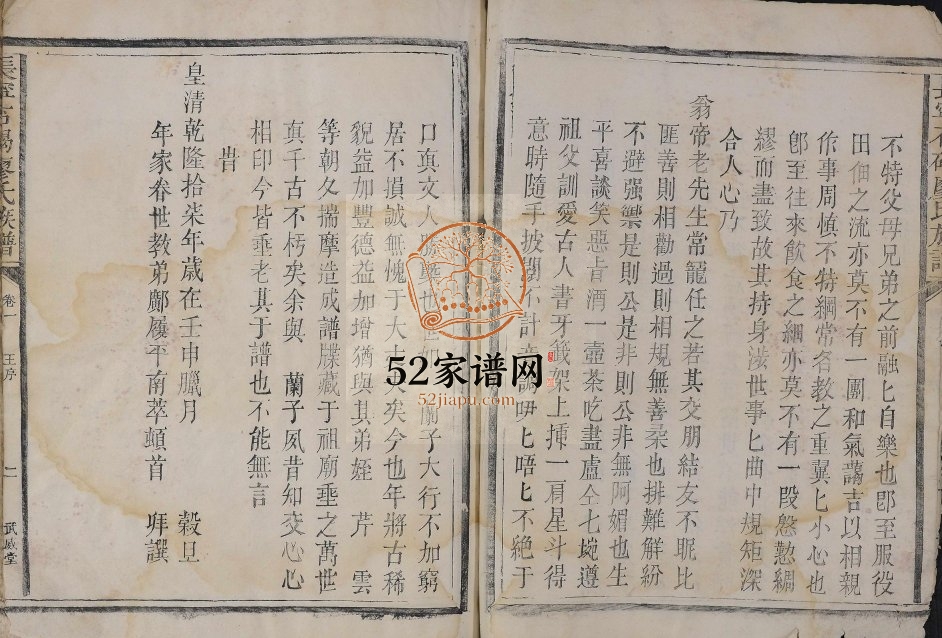 不特父母兄弟之前融匕自樂也卽至服役
田佃之流亦莫不有一團和氣藹吉以相親
作事周慎不特綱常名教之重翼匕小心也
卽至往來飲食之細亦莫不有一段慇懃綢
繆而盡致故其持身涉世事匕曲中規矩深
合人心乃
翁帝老先生常寵任之若其交朋結友不昵比
匪善則相勸過則相規無善㮈也排難解紛
不避强禦是則公是非則公非無阿媚也生
平喜談笑惡旨酒一壺茶吃盡盧仝七碗遵
祖父訓愛古人書牙籤架上揷一肩星斗得
意時隨手披閱不計 咿匕唔匕不絶于
口眞文人 也 蘭子大行不加窮
居不損誠無愧于大丈夫矣今也年將古稀
貌益加豐德益加增猶與其弟姪 芹 雲
等朝夕揣摩造成譜牒藏于祖廟垂之萬世
眞千古不朽矣余與 蘭子夙昔知交心心
相印今皆垂老其于譜也不能無言
旹
皇清乾隆拾柒年歲在壬申臘月 穀旦
年家眷世教弟鄺履平南萃頓首 拜譔
廖氏族譜
卷一
王序
二
武威堂
52家谱网
52jiapu.com